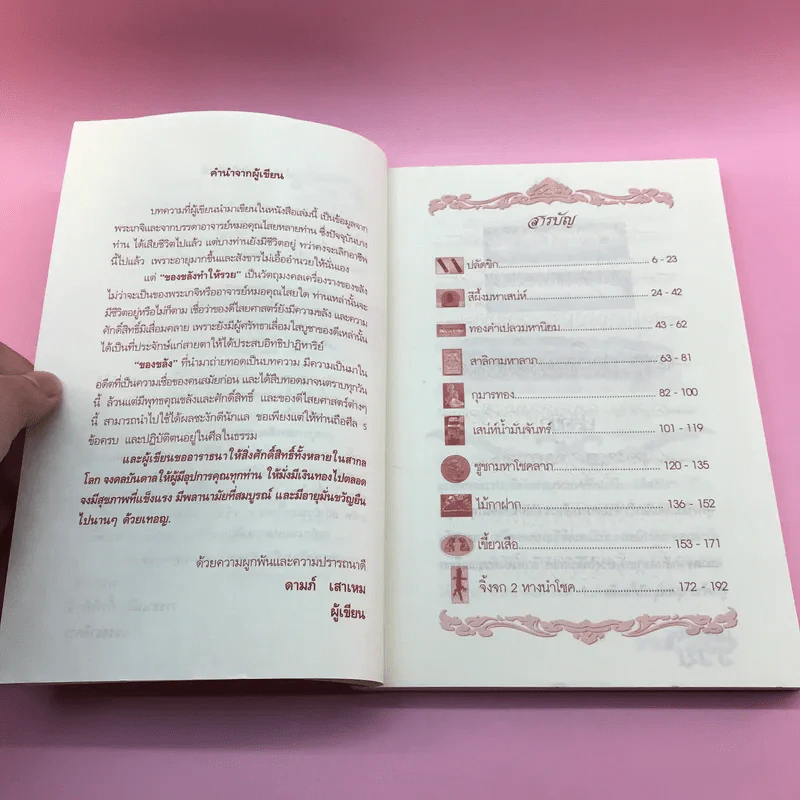 คำนำจากผู้เขียน
บทความที่ผู้เขียนนำมาเขียนในหนังสือเล่มนี้ เป็นข้อมูลจาก
พระเกจิและจากบรรดาอาจารย์หมอคุณไสยหลายท่าน ซึ่งปัจจุบันบาง
ท่าน ได้เสียชีวิตไปแล้ว แต่บางท่านยังมีชีวิตอยู่ ทว่าคงจะเลิกอาชีพ
นี้ไปแล้ว เพราะอายุมากขึ้นและสังขารไม่เอื้ออำนวยให้นั่นเอง
แต่ "ของขลังทำให้รวย" เป็นวัตถุมงคลเครื่องรางของขลัง
ไม่ว่าจะเป็นของพระเกจิหรืออาจารย์หมอคุณไสยใด ท่านเหล่านั้นจะ
มีชีวิตอยู่หรือไม่ก็ตาม เชื่อว่าของดีไสยศาสตร์ยังมีความขลัง และความ
ศักดิ์สิทธิ์มิเสื่อมคลาย เพราะยังมีผู้ศรัทธาเลื่อมใสบูชาของดีเหล่านั้น
ได้เป็นที่ประจักษ์แก่สายตาให้ได้ประสบอิทธิปาฏิหาริย์
"ของขลัง" ที่นำมาถ่ายทอดเป็นบทความ มีความเป็นมาใน
อดีตที่เป็นความเชื่อของคนสมัยก่อน และได้สืบทอดมาจนตราบทุกวัน
นี้ ล้วนแต่มีพุทธคุณขลังและศักดิ์สิทธิ์ และของดีไสยศาสตร์ต่างๆ
นี้ สามารถนำไปใช้ได้ผลชะงักดีนักแล ขอเพียงแต่ให้ท่านถือศีล ๕
ข้อครบ และปฏิบัติตนอยู่ในศีลในธรรม
และผู้เขียนขออาราธนาให้สิ่งศักดิ์สิทธิ์ทั้งหลายในสากล
โลก จงดลบันดาลให้ผู้มีอุปการคุณทุกท่าน ให้มั่งมีเงินทองไปตลอด
จงมีสุขภาพที่แข็งแรง มีพลานามัยที่สมบูรณ์ และมีอายุมั่นขวัญยืน
ไปนานๆ ด้วยเทอญ.
ด้วยความผูกพันและความปรารถนาดี
ดามภ์ เสาเหม
ผู้เขียน
สารบัญ
ปลัดขิก 6 - 23
สีผึ้งมหาเสน่ห์ 24 - 42
ทองคำเปลวมหานิยม 43 - 62
สาลิกามหาลาภ 63 - 81
กุมารทอง 82 - 100
เสน่ห์น้ำมันจันทร์ 101 - 119
ชูชกมหาโชคลาภ 120 - 135
ไม้กาฝาก 136 - 152
เขี้ยวเสือ 153 - 171
จิ้งจก 2 ทางนำโชค 172 - 192